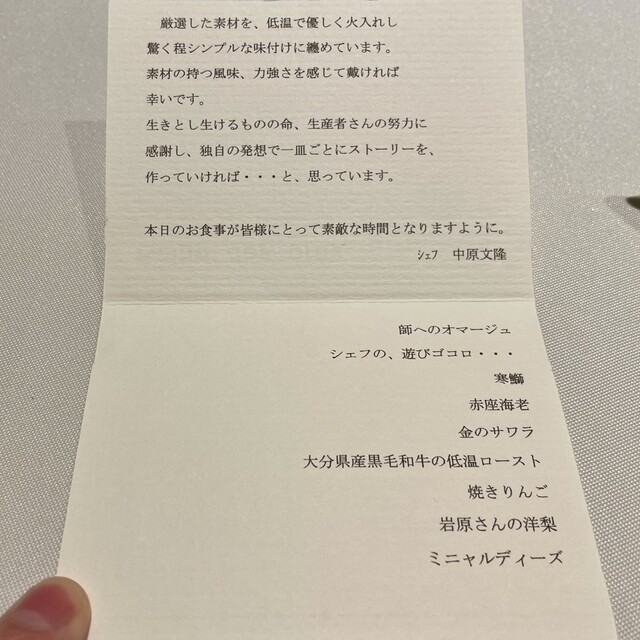 厳選した素材を、低温で優しく火入れし
驚く程シンプルな味付けに纏めています。
素材の持つ風味、力強さを感じて戴ければ
幸いです。
生きとし生けるものの命、生産者さんの努力に
感謝し、独自の発想で一皿ごとにストーリーを、
作っていければ・・・と、思っています。
本日のお食事が皆様にとって素敵な時間となりますように。
ｼｪﾌ 中原文隆
師へのオマージュ
シェフの、遊びゴコロ・・・
寒鰤
赤座海老
金のサワラ
大分県産黒毛和牛の低温ロースト
焼きりんご
岩原さんの洋梨
ミニャルディーズ